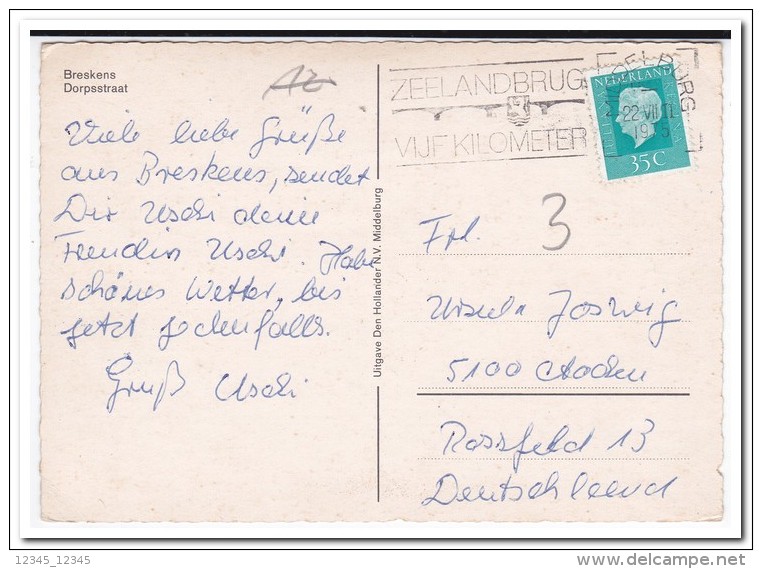 Breskens
Dorpsstraat
AZ
ZEELANDBRUG
VIJF KILOMETER
MIDDELBURG
22 VII
NEDERLAND
35C
Viele liebe Grüße
aus Breskens, sendet
Dir Uschi deine
Freundin Uschi. Habe
schönes Wetter, bis
jetzt jedenfalls.
Gruß Uschi
Uitgave Den Hollander N.V. Middelburg
3
Frl.
Ursula Joswig
5100 Aachen
Rossfeld 13
Deutschland
12345_12345
delcampe.net